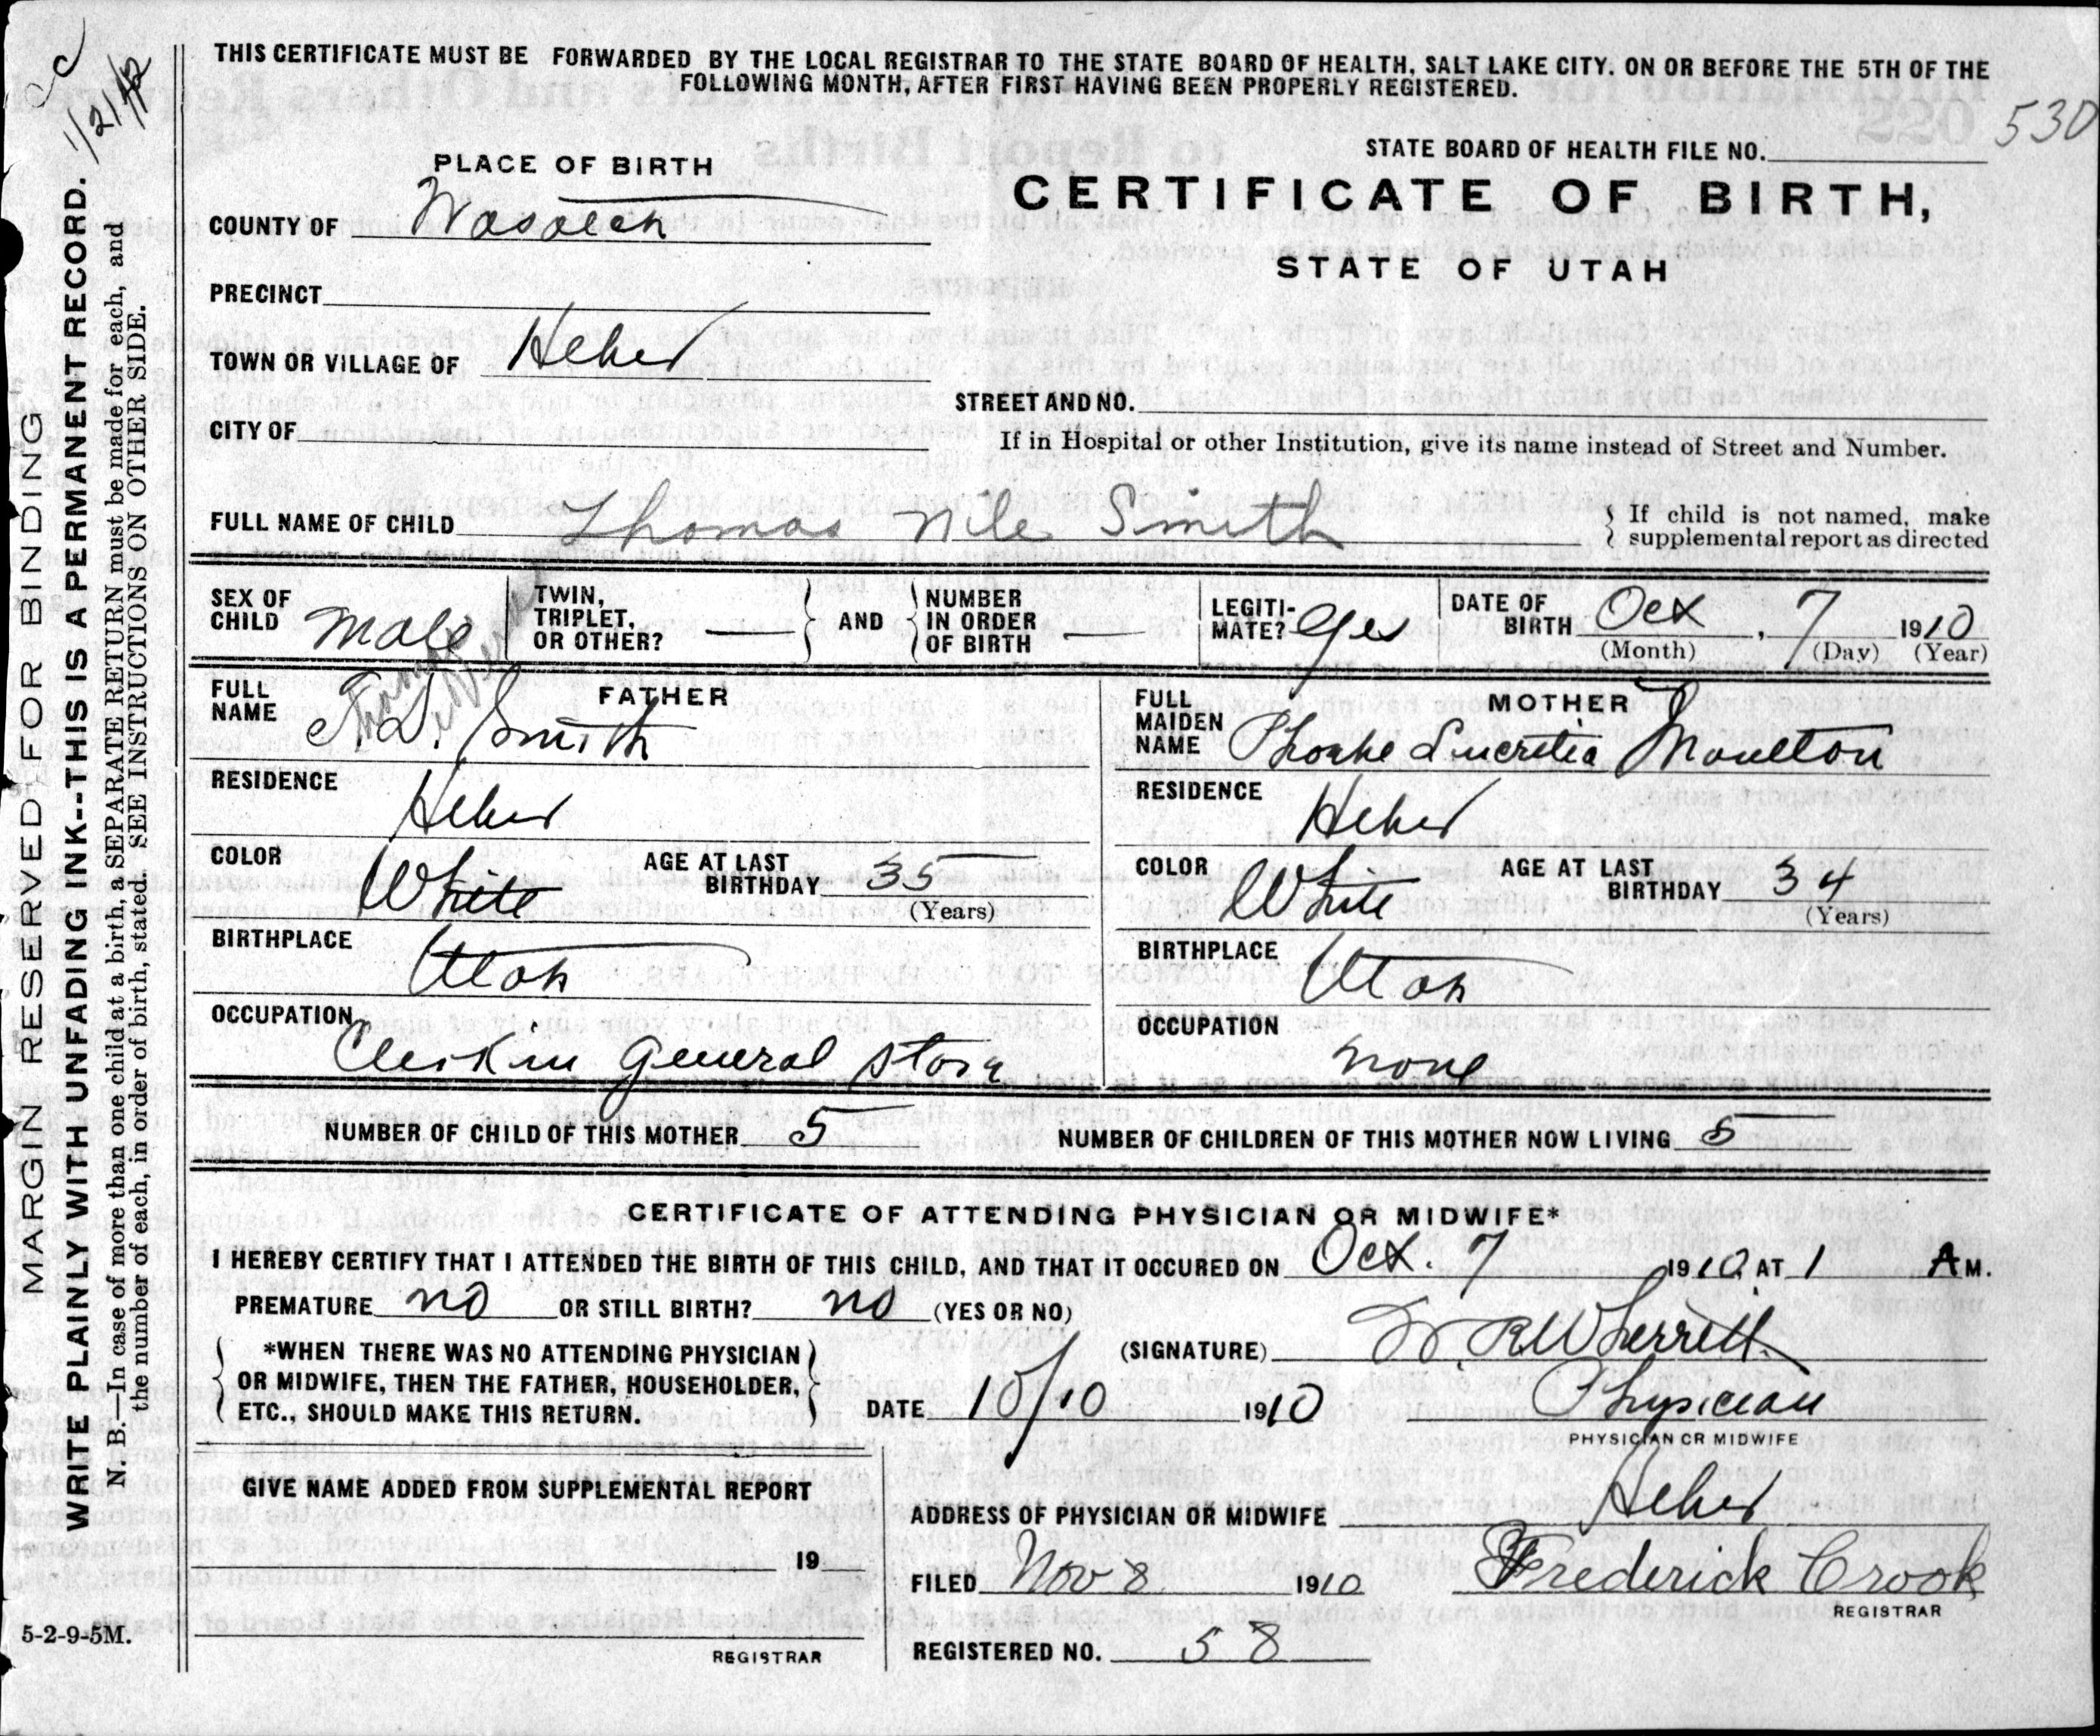 THIS CERTIFICATE MUST BE FORWARDED BY THE LOCAL REGISTRAR TO THE STATE BOARD OF HEALTH, SALT LAKE CITY. ON OR BEFORE THE 5TH OF THE
FOLLOWING MONTH, AFTER FIRST HAVING BEEN PROPERLY REGISTERED.
530
STATE BOARD OF HEALTH FILE NO.
PLACE OF BIRTH
CERTIFICATE OF BIRTH,
STATE OF UTAH
COUNTY OF Wasatch
PRECINCT
TOWN OR VILLAGE OF Heber
STREET AND NO.
CITY OF
If in Hospital or other Institution, give its name instead of Street and Number.
FULL NAME OF CHILD Thomas Nile Smith
If child is not named, make
supplemental report as directed
SEX OF CHILD Male
TWIN, TRIPLET, OR OTHER? —
AND
NUMBER IN ORDER OF BIRTH —
LEGITIMATE? Yes
DATE OF BIRTH Oct, 7 1910
(Month) (Day) (Year)
FATHER
FULL NAME T. D. Smith
RESIDENCE Heber
COLOR White AGE AT LAST BIRTHDAY 35
(Years)
BIRTHPLACE Utah
OCCUPATION Clerk in General Store
MOTHER
FULL MAIDEN NAME Phoebe Lucretia Moulton
RESIDENCE Heber
COLOR White AGE AT LAST BIRTHDAY 34
(Years)
BIRTHPLACE Utah
OCCUPATION None
NUMBER OF CHILD OF THIS MOTHER 5 NUMBER OF CHILDREN OF THIS MOTHER NOW LIVING 5
CERTIFICATE OF ATTENDING PHYSICIAN OR MIDWIFE*
I HEREBY CERTIFY THAT I ATTENDED THE BIRTH OF THIS CHILD, AND THAT IT OCCURED ON Oct. 7 1910 AT 1 A M.
PREMATURE no OR STILL BIRTH? no (YES OR NO)
*WHEN THERE WAS NO ATTENDING PHYSICIAN
OR MIDWIFE, THEN THE FATHER, HOUSEHOLDER,
ETC., SHOULD MAKE THIS RETURN.
(SIGNATURE) W. R. Wherritt
DATE 10/10 1910 Physician
PHYSICIAN OR MIDWIFE
GIVE NAME ADDED FROM SUPPLEMENTAL REPORT
19
REGISTRAR
ADDRESS OF PHYSICIAN OR MIDWIFE Heber
FILED Nov 8 1910 Frederick Crook
REGISTRAR
REGISTERED NO. 58
MARGIN RESERVED FOR BINDING
WRITE PLAINLY WITH UNFADING INK--THIS IS A PERMANENT RECORD.
N. B.—In case of more than one child at a birth, a SEPARATE RETURN must be made for each, and
the number of each, in order of birth, stated. SEE INSTRUCTIONS ON OTHER SIDE.
5-2-9-5M.